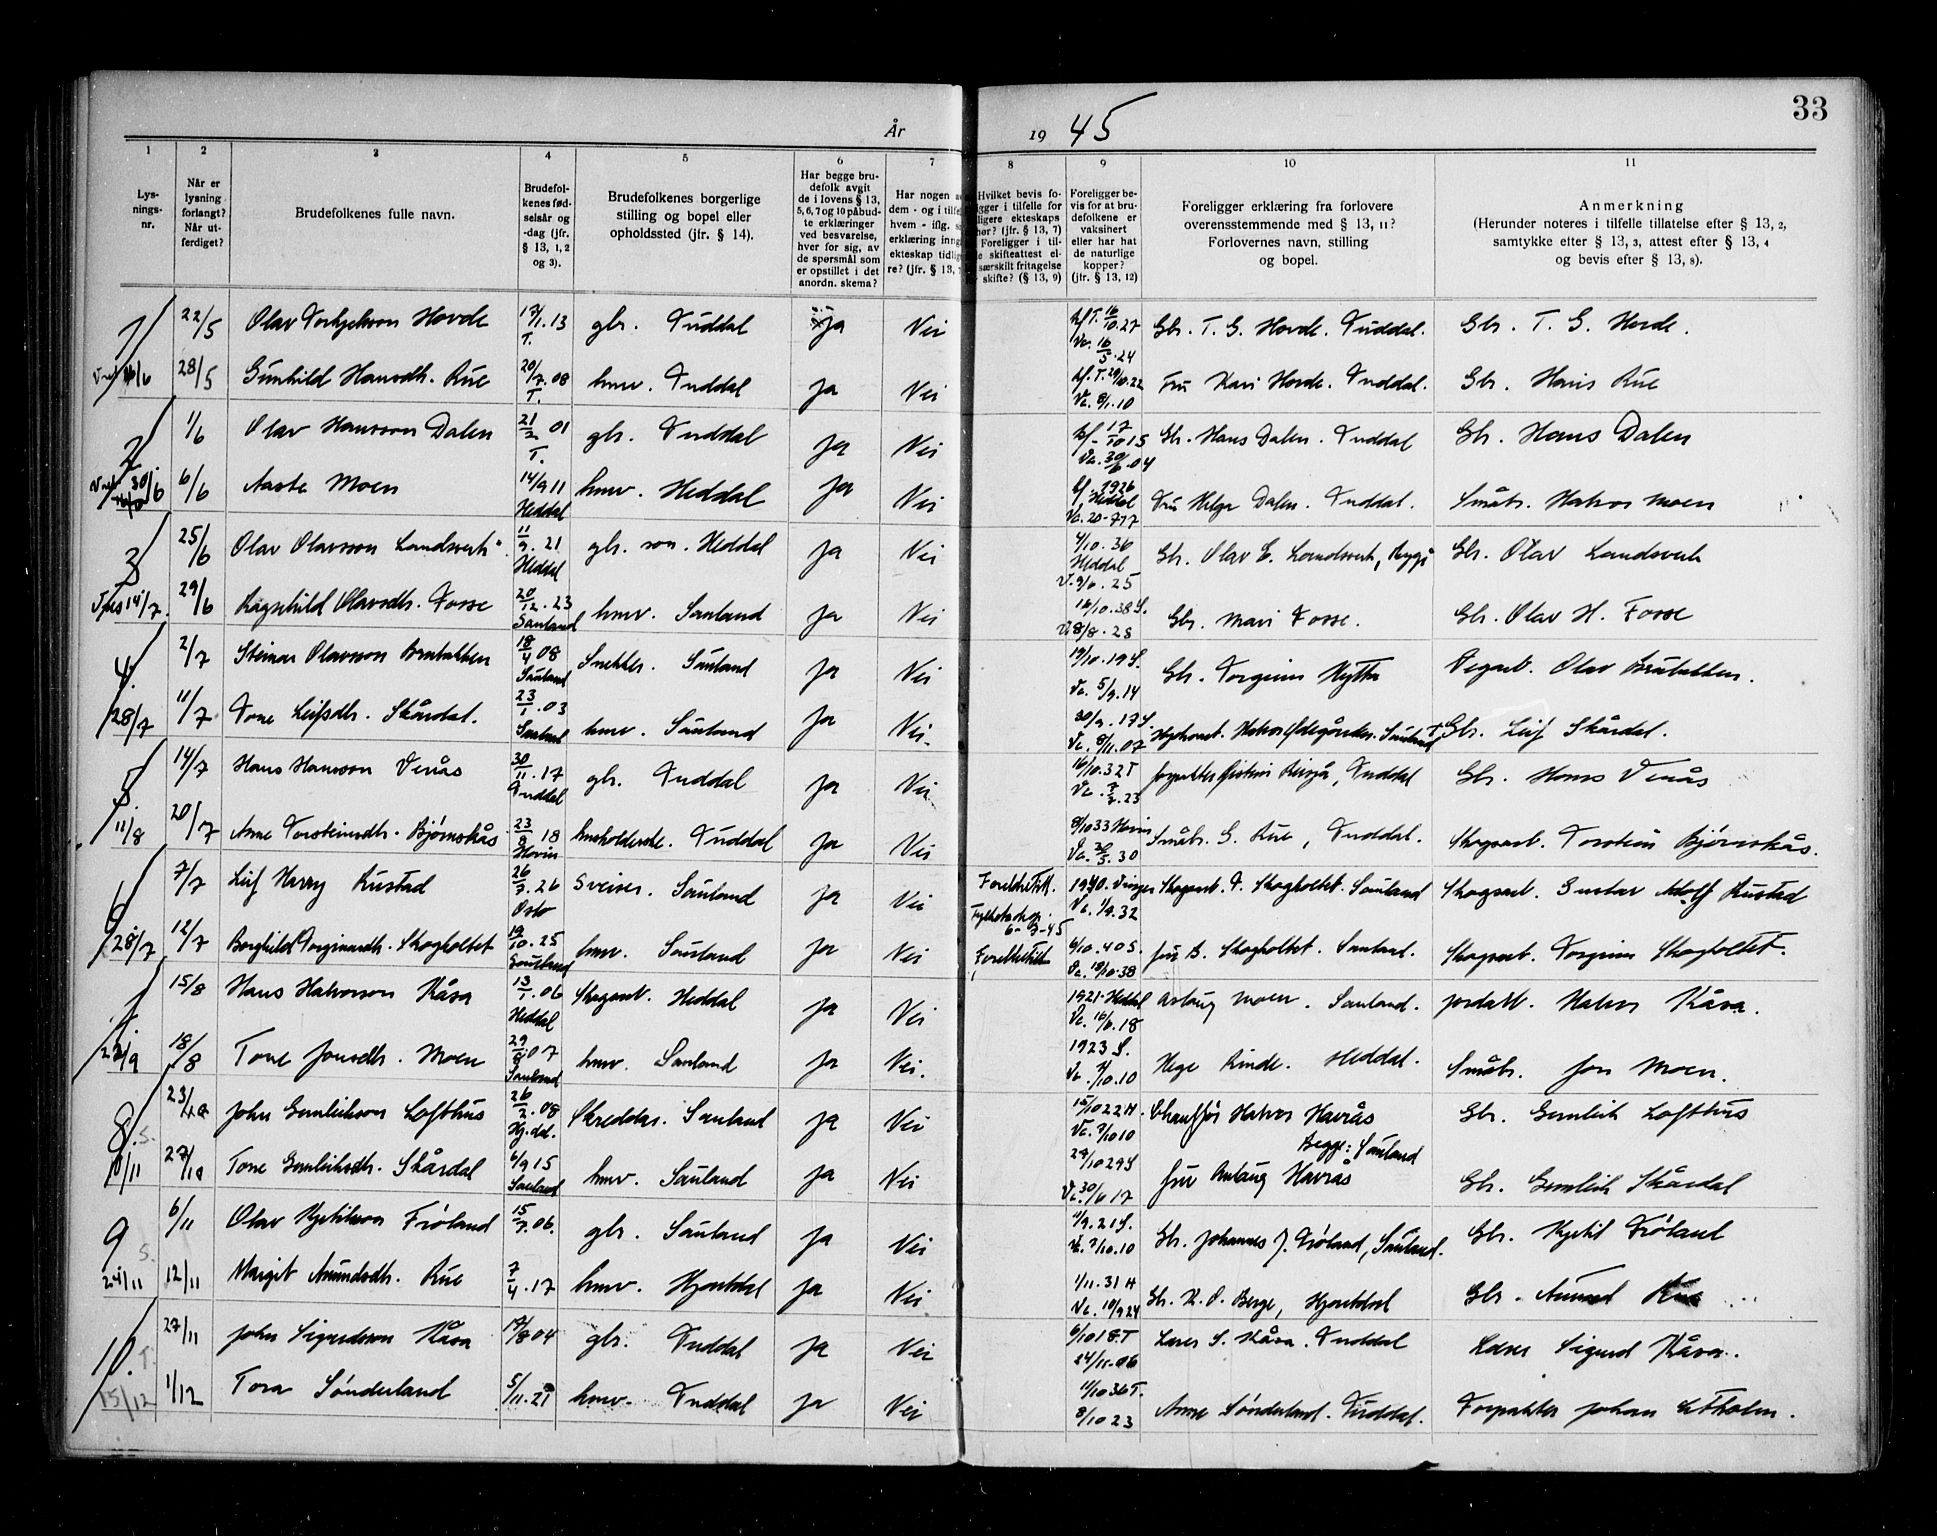 33
År 1945
1 2 3 4 5 6 7 8 9 10 11
Lys-
nings-
nr.
Når er
lysning
forlangt?
Når ut-
ferdiget?
Brudefolkenes fulle navn.
Brudefol-
kenes fød-
selsår og
-dag (jfr.
§ 13, 1, 2
og 3).
Brudefolkenes borgerlige
stilling og bopel eller
opholdssted (jfr. § 14).
Har begge bru-
defolk avgit
de i lovens § 13,
5, 6, 7 og 10 påbud-
te erklæringer
ved besvarelse,
hver for sig, av
de spørsmål som
er opstillet i det
anordn. skema?
Har nogen a
dem - og i tilfel
hvem - iflg. s
erklæring inng
ekteskap tidlig
re? (jfr. § 13,
Hvilket bevis fo-
ligger i tilfelle for
ligere ekteskaps
hør? (jfr. § 13, 7)
Foreligger i til-
e skifteattest el-
særskilt fritagelse
skifte? (§ 13, 9)
Foreligger be-
vis for at bru-
defolkene er
vaksinert
eller har hat
de naturlige
kopper?
(jfr. § 13, 12)
Foreligger erklæring fra forlovere
overensstemmende med § 13, 11?
Forlovernes navn, stilling
og bopel.
Anmerkning
(Herunder noteres i tilfelle tillatelse efter § 13, 2,
samtykke efter § 13, 3, attest efter § 13, 4
og bevis efter § 13, 8).
1 22/5 Olav Torkjelsson Hovde 17/1.13 T. gbr. Tuddal Ja Nei kf. T. 16/10.27 Va. 16/5.24 Gbr. T. G. Hovde. Tuddal. Gbr. T. G. Hovde.
16/6 28/5 Gunhild Hansdtr. Rue 20/7.08 T. hmv. Tuddal Ja Nei kf. T. 29/10.22 Va. 8/1.10 Fru Kari Hovde. Tuddal. Gbr. Hans Rue
2 1/6 Olav Hansson Dalen 21/2 01 T. gbr. Tuddal Ja Nei kf. 17/10 15 Va. 30/6.04 Gbr. Hans Dalen. Tuddal Gbr. Hans Dalen
30/6 6/6 Aaste Moen 14/9 11 Heddal hmv. Heddal Ja Nei kf. 1926 Heddal Va. 20-7 17 Fru Helga Dalen. Tuddal. Småbr. Halvor Moen
3 25/6 Olav Olavsson Landsverk 11/9.21 Heddal gbr. son. Heddal Ja Nei 4/10.36 Heddal V. 9/6.25 Gbr. Olav E. Landsverk, Gbr. Olav Landsverk
14/7. 29/6 Ragnhild Olavsdtr. Fosse 20/12.23 Sauland hmv. Sauland Ja Nei 16/10.38 S. V. 8/8.28 Gbr. Mari Fosse. Gbr. Olav H. Fosse
4. 2/7 Steinar Olavsson Bratabben 18/4 08 Sauland Snekker. Sauland Ja Nei 19/10.19 S. Va. 5/9.14 Gbr. Torgrim Hytta Vegarb. Olav Bratabben.
28/7 11/7 Tone Leifsdtr. Skårdal. 23/1.03 Sauland hmv. Sauland Ja Nei. 30/9.17 S. Va. 8/11.07 Halvor Ødegården. Sauland Gbr. Leif Skårdal.
5. 14/7 Hans Hansson Venås 30/11.17 Tuddal gbr. Tuddal Ja Nei 16/10.32 T Va. 7/7.23 Tuddal Gbr. Hans Venås
11/8 20/7 Anne Torsteinsdtr. Bjørnskås 23/8 18 Hovin husholderske. Tuddal Ja Nei 8/10 33 Hovin Va. 30/5.30 Småbr. G. Rue, Tuddal. Skogsarb. Torstein Bjørnskås.
6 7/7 Leif Harry Rustad 26/7.26 Oslo Sveiser. Sauland Ja Nei 1940. Va. 1/9.32 Skogsarb. T. Skogholtet. Sauland Skogsarb. Gustav Adolf Rustad
6-7-45
28/7 12/7 Borghild Torgrimsdtr. Skogholtet 19/10.25 Sauland hmv. Sauland Ja Nei 6/10.40 S. Va. 18/10.38 Fru B. Skogholtet. Sauland. Skogsarb. Torgrim Skogholtet.
15/8 Hans Halvorson Kåsa 13/1.06 Heddal Skogsarb. Heddal Ja Nei 1921. Heddal Va. 16/6.18 Aslaug Moen. Sauland. Halvor Kåsa.
22/9 18/8 Tone Jonsdtr. Moen 29/8 07 Sauland hmv. Sauland Ja Nei. 1923 S. Va. 7/10.10 Hege Rinde. Heddal. Småbr. Jon Moen.
8 S. 23/10 John Gamleiksson Lofthus 26/2.08 Hj.dal. Skredder. Sauland Ja Nei 15/10 22 H. Va. 7/10 10 Chauffør Halvor Havrås Gbr. Gamleik Lofthus
Begge: Sauland
10/11 27/10 Tone Gamleiksdtr. Skårdal 6/9 15 Sauland hmv. Sauland Ja Nei 29/10 29 S Va. 30/6 17 Fru Aslaug Havrås Gbr. Gamleik Skårdal
9 S. 6/11 Olav Kjetilsson Frøland 15/7.06. gbr. Sauland Ja Nei 4/9.21 S. Va. 7/10.10 Gbr. Johannes J. Frøland, Sauland. Gbr. Kjetil Frøland
24/11 12/11 Margit Amundsdtr. Rue 7/4.17 hmv. Hjartdal Ja Nei 1/11.31 H Va. 10/9 24 Gbr. K. O. Berge, Hjartdal Gbr. Amund Rue
10. T. 27/11 John Sigurdsson Kåsa 17/8 04 gbr. Tuddal Ja Nei 6/10 18 T 24/11-06 Lærer S. Kåsa. Tuddal Lærer Sigurd Kåsa.
15/12 1/12 Tora Sønderland 5/11.21 hmv. Tuddal Ja Nei 11/10 36 T. 8/10 23 Anne Sønderland. Tuddal. Forpakter Johan